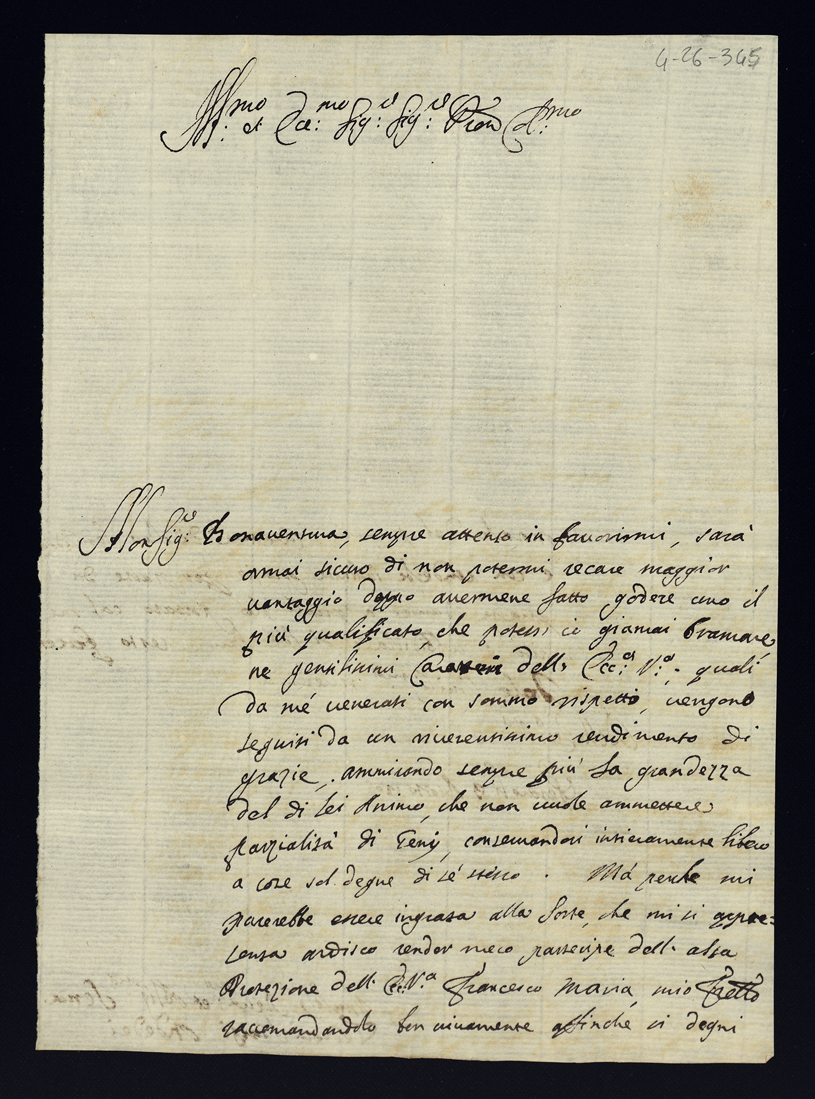 4-26-345
Ill:mo et Ecc:mo Sig:r Sig:r Pron Col:mo
Monsig:r Bonaventura, sempre attento in favorirmi, sarà
omai sicuro di non potermi recare maggior
vantaggio doppo avermene fatto godere uno il
più qualificato, che potessi io giamai bramare
ne gentilissimi Caratteri dell' Ecc:a V:a, quali
da mé venerati con sommo rispetto, vengono
seguiti da un riverentissimo rendimento di
grazie, ammirando sempre più la grandezza
del di Lei Animo, che non vuole ammettere
parzialità di Genij, conservandosi intieramente libero
a cose sol degne di sé stesso. Mà perche mi
parerebbe essere ingrata alla Sorte, che mi si appre=
senta ardisco render meco partecipe dell' alta
Protezione dell' Ecc: V:a Francesco Maria, mio Fratello
raccomandandolo ben vivamente affinché si degni